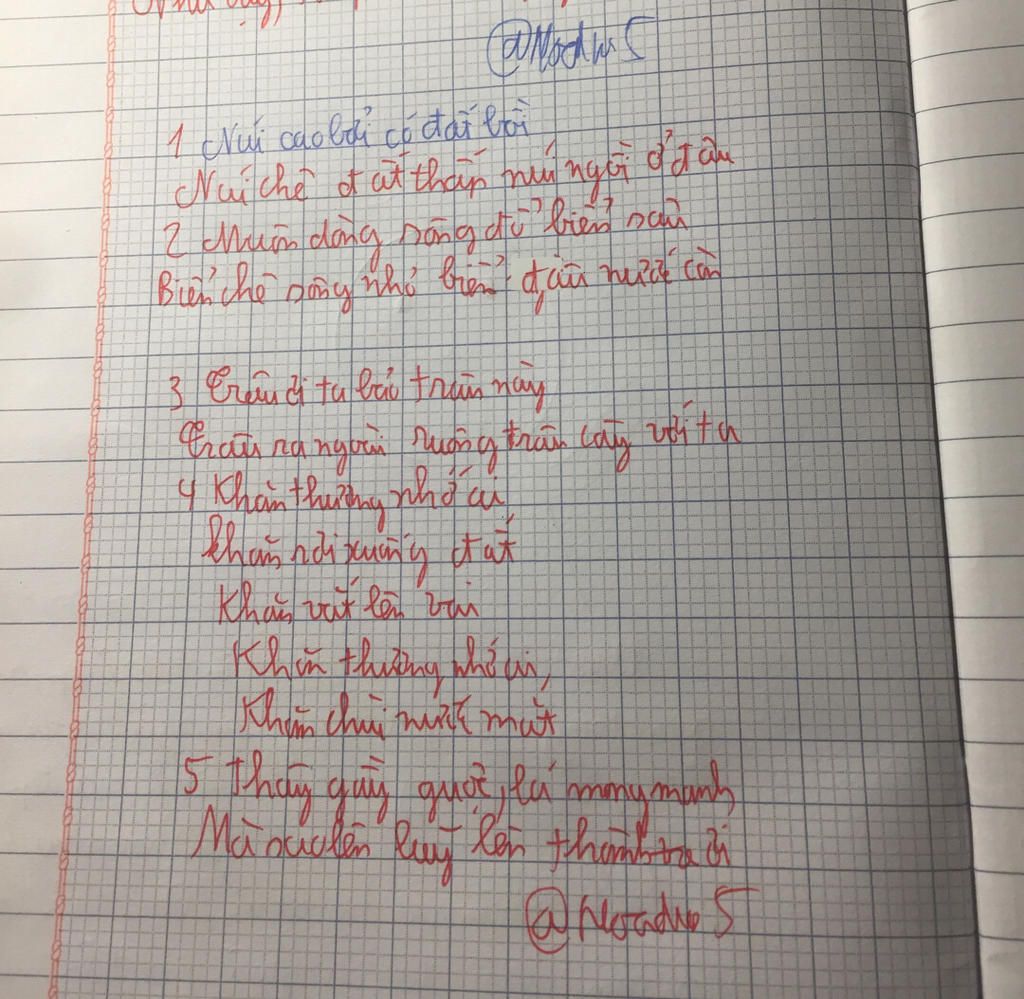 @Nodw 5
1 Núi cao bởi có đất bồi
Núi chê đất thấp núi ngồi ở đâu
2 Muôn dòng sông đổ biển sâu
Biển chê sông nhỏ biển đâu nước còn
3 Trâu ơi ta bảo trâu này
Trâu ra ngoài ruộng trâu cày với ta
4 Khăn thương nhớ ai
Khăn rơi xuống đất
Khăn vắt lên vai
Khăn thương nhớ ai,
Khăn chùi nước mắt
5 Thân gầy guộc, lá mong manh
Mà sao lên luỹ lên thành tre ơi
@ 5